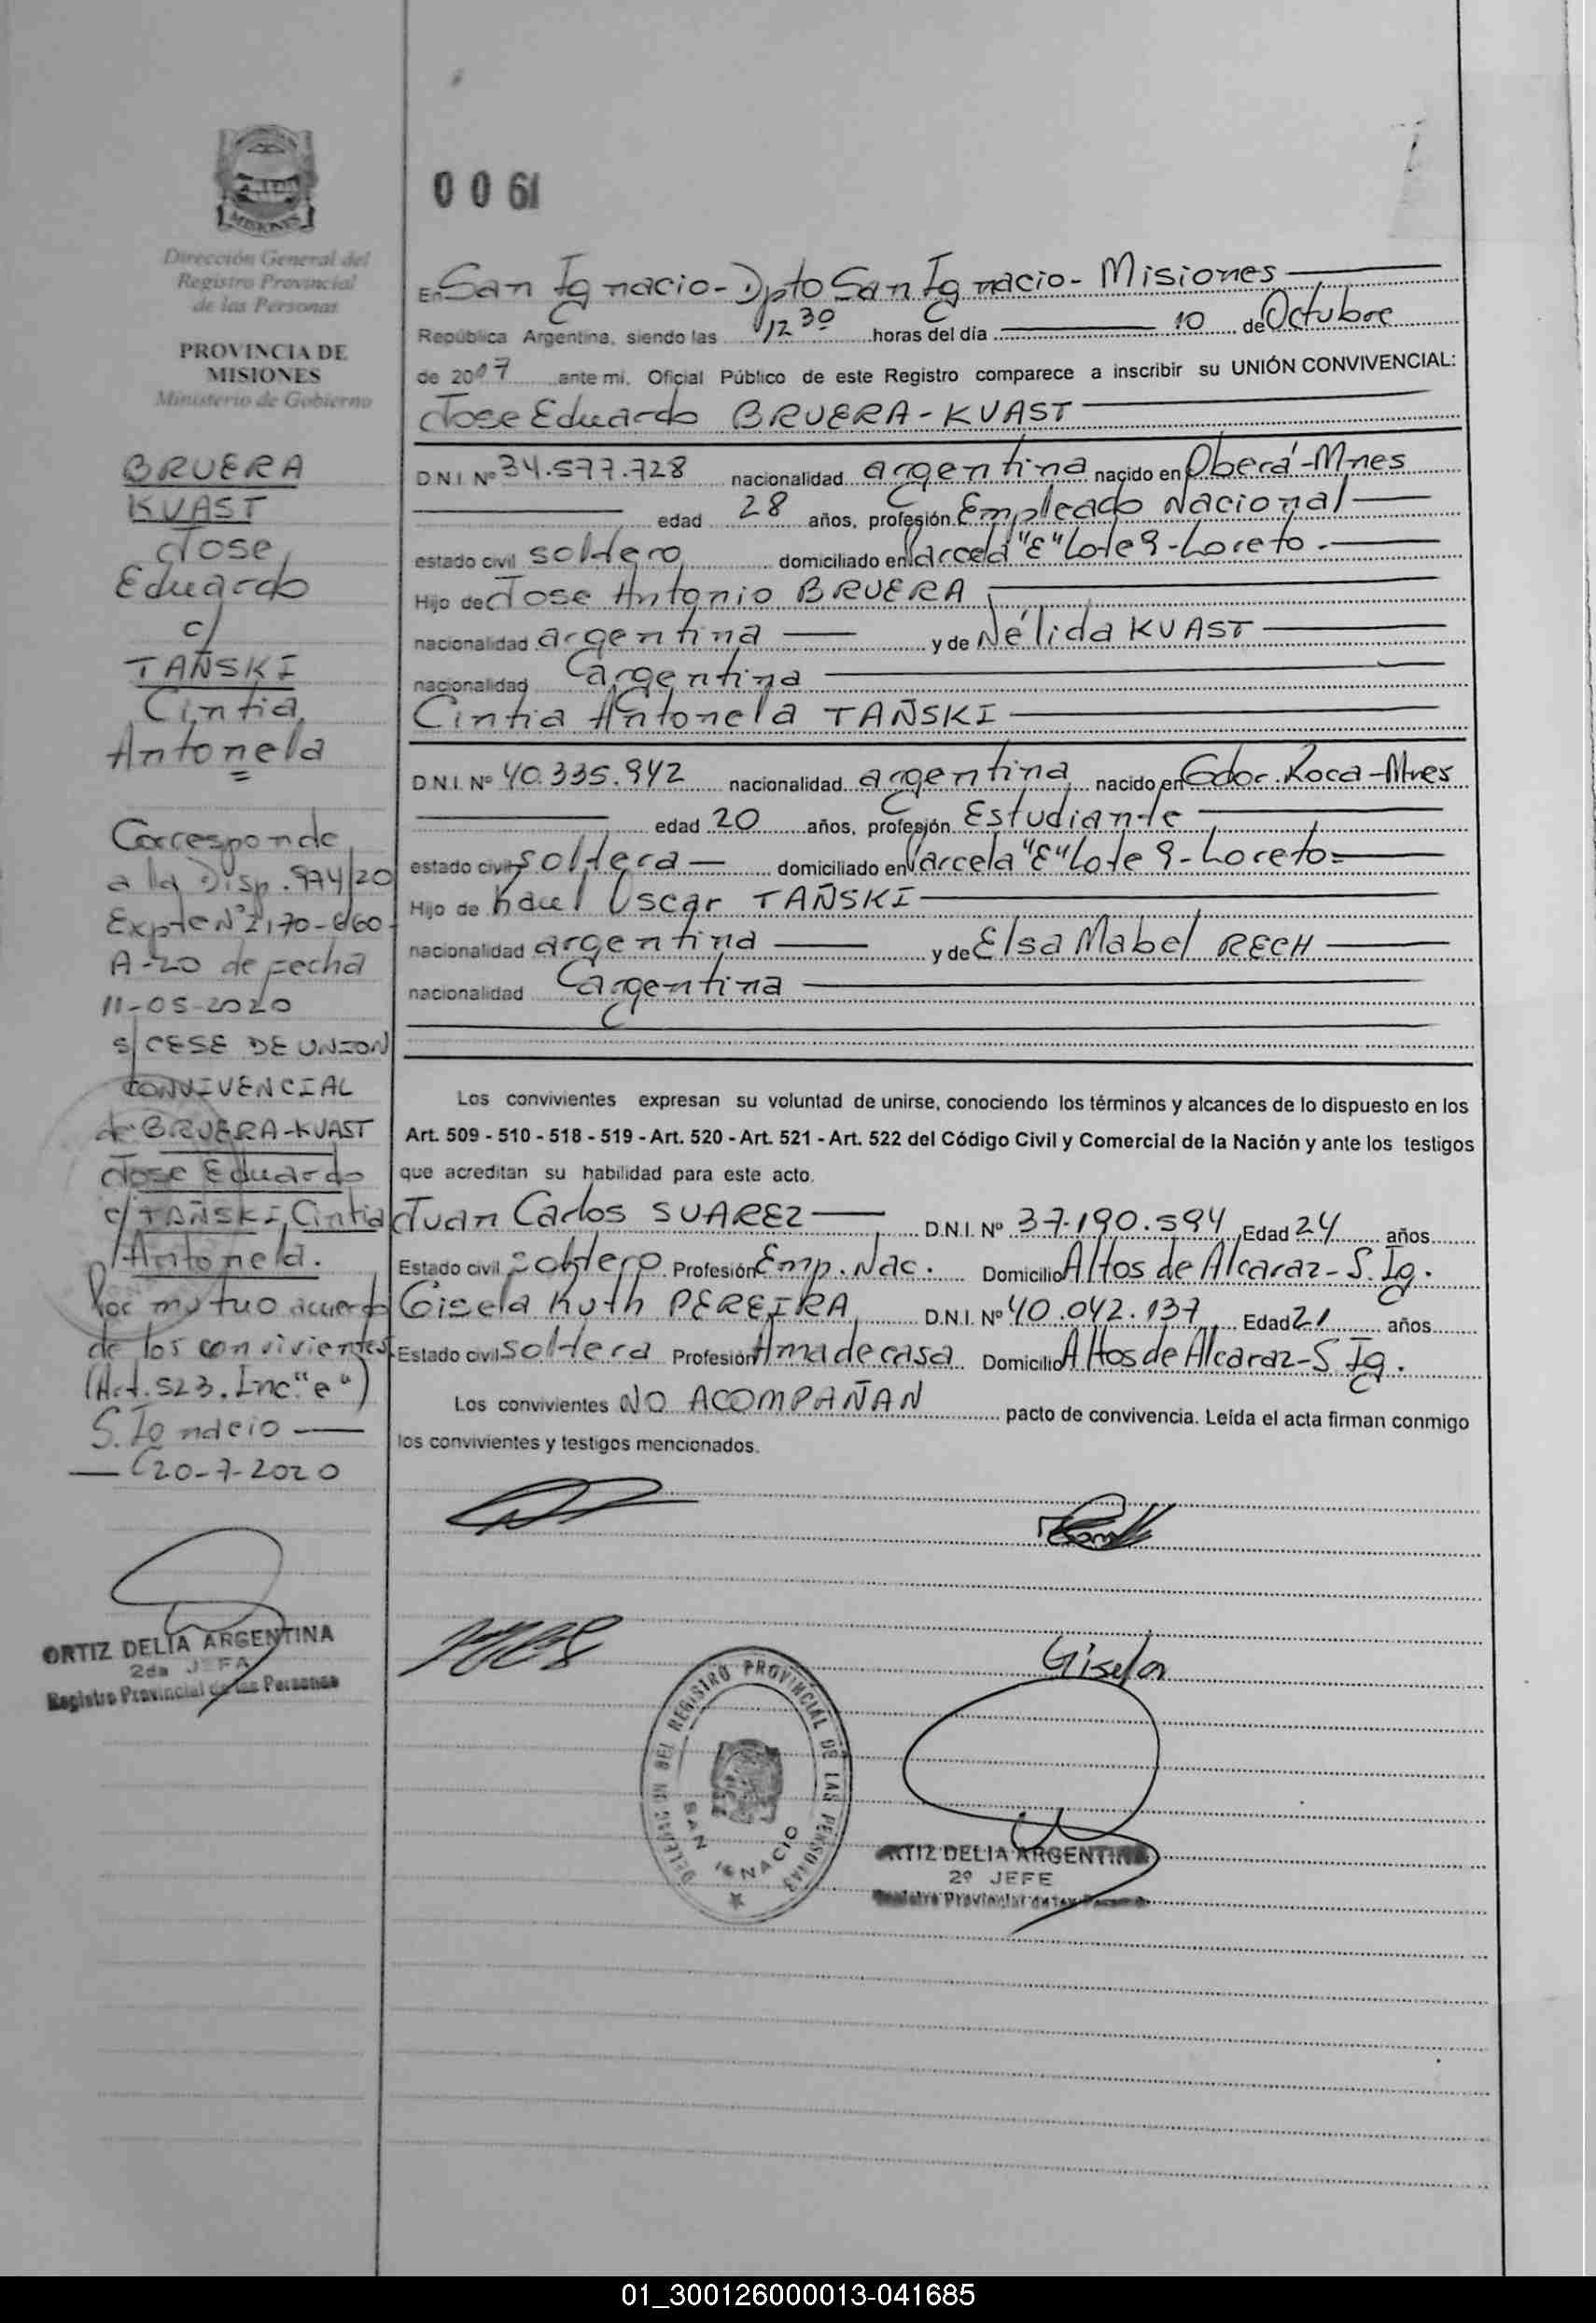 MISIONES
Dirección General del
Registro Provincial
de las Personas
PROVINCIA DE
MISIONES
Ministerio de Gobierno
BRUERA
KVAST
Jose
Eduardo
c/
TAÑSKI
Cintia
Antonela
Corresponde
a la Disp. 974/20
Expte N° 2170-660-
A-20 de fecha
11-05-2020
s/ CESE DE UNION
CONVIVENCIAL
de BRUERA-KVAST
Jose Eduardo
c/ TAÑSKI, Cintia
Antonela.
Por mutuo acuerdo
de los convivientes
(Art. 523. Inc "e")
S. Ignacio
20-7-2020
ORTIZ DELIA ARGENTINA
2da JEFA
Registro Provincial de las Personas
0061
En San Ignacio - Dpto San Ignacio - Misiones
República Argentina, siendo las 12 30 horas del día 10 de Octubre
de 2017 ante mi, Oficial Público de este Registro comparece a inscribir su UNIÓN CONVIVENCIAL:
Jose Eduardo BRUERA-KVAST
D.N.I. Nº 34.577.728 nacionalidad argentina nacido en Oberá-Mnes
edad 28 años, profesión Empleado Nacional
estado civil soltero domiciliado en Parcela "E" Lote 9-Loreto.-
Hijo de Jose Antonio BRUERA
nacionalidad argentina y de Nélida KVAST
nacionalidad argentina
Cintia Antonela TAÑSKI
D.N.I. Nº 40.335.942 nacionalidad argentina nacido en Gdor. Roca-Mnes
edad 20 años, profesión Estudiante
estado civil soltera domiciliado en Parcela "E" Lote 9-Loreto=
Hijo de Raul Oscar TAÑSKI
nacionalidad argentina y de Elsa Mabel RECH
nacionalidad argentina
Los convivientes expresan su voluntad de unirse, conociendo los términos y alcances de lo dispuesto en los
Art. 509 - 510 - 518 - 519 - Art. 520 - Art. 521 - Art. 522 del Código Civil y Comercial de la Nación y ante los testigos
que acreditan su habilidad para este acto.
Juan Carlos SUAREZ D.N.I. Nº 37.190.594 Edad 24 años
Estado civil soltero Profesión Emp. Nac. Domicilio Altos de Alcaraz-S. Ig.
Gisela Ruth PEREIRA D.N.I. Nº 40.042.137 Edad 21 años
Estado civil soltera Profesión Ama de casa Domicilio Altos de Alcaraz-S Ig.
Los convivientes NO ACOMPAÑAN pacto de convivencia. Leída el acta firman conmigo
los convivientes y testigos mencionados.
Gisela
DELEGACION DEL REGISTRO PROVINCIAL DE LAS PERSONAS
SAN IGNACIO
ORTIZ DELIA ARGENTINA
2º JEFE
Registro Provincial de las Personas
01_300126000013-041685